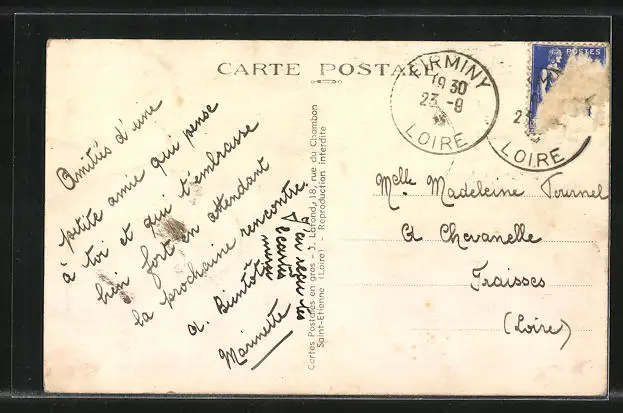 CARTE POSTALE
Amitiés d'une
petite amie qui pense
à toi et qui t'embrasse
bien fort en attendant
la prochaine rencontre.
A. Bientôt
Marinette
J'ai reçu les
cartes
Cartes Postales en gros - J. Lafond, 18, rue du Chambon
Saint-Etienne (Loire) - Reproduction interdite
FIRMINY
19 30
23 -9
LOIRE
POSTES
LOIRE
Melle Madeleine Fournel
A Chevanelle
Fraisses
(Loire)